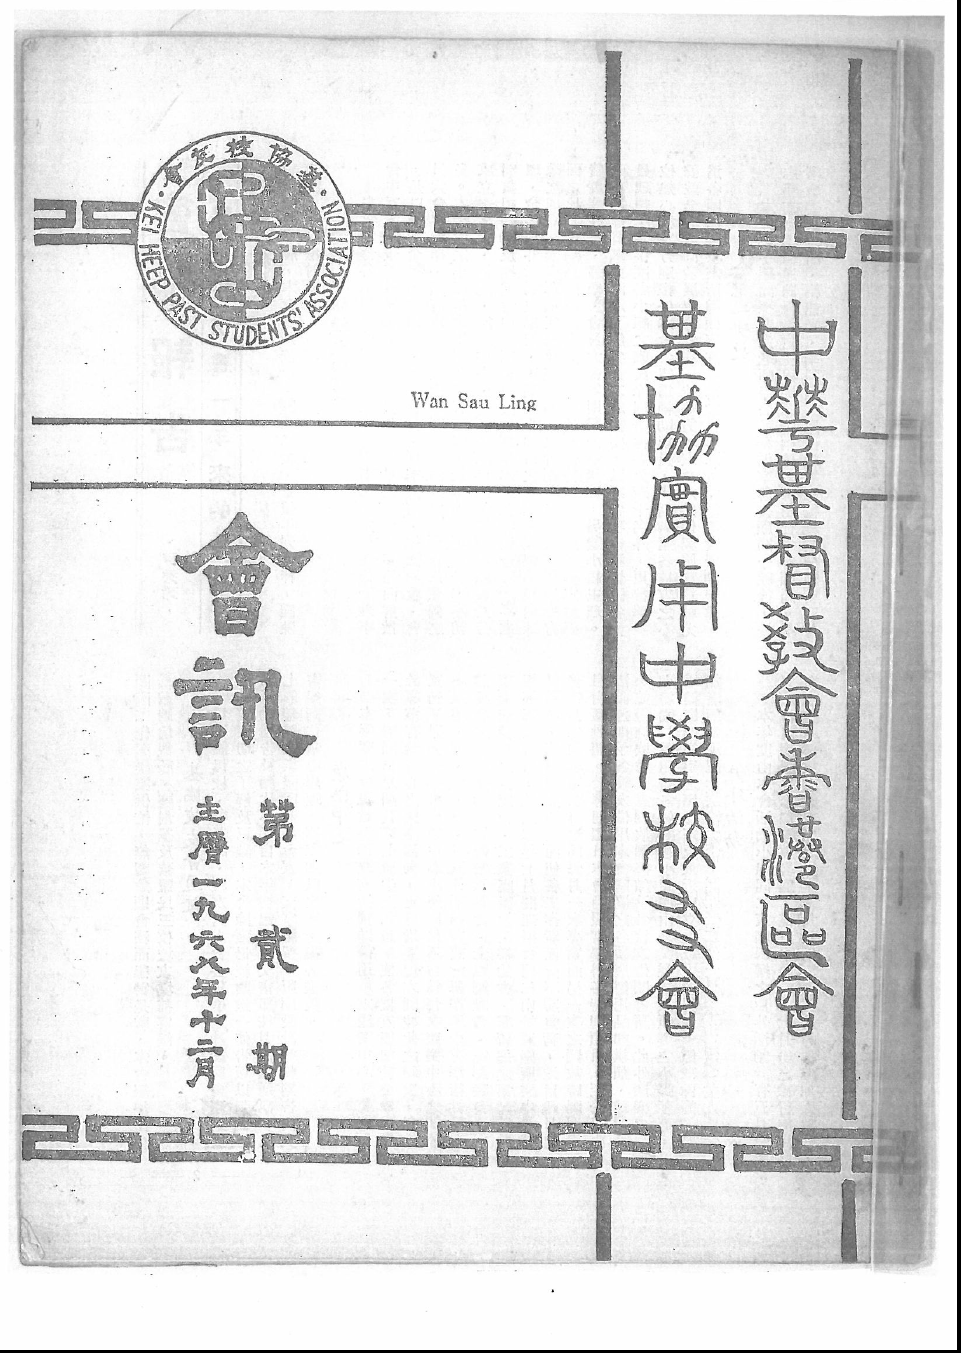 中華基督教會香港區會
基協實用中學校友會
基協校友會
KEI HEEP PAST STUDENTS' ASSOCIATION
Wan Sau Ling
會訊
第貳期
主曆一九六八年十二月